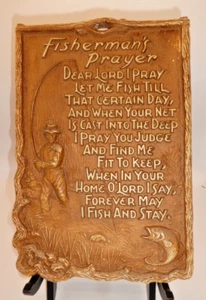 Fisherman's
Prayer
Dear Lord I pray
Let me fish till
That certain day,
And when your net
Is cast into the deep
I pray you judge
And find me
Fit to keep,
When in your
Home O'Lord I say,
Forever may
I fish and stay.